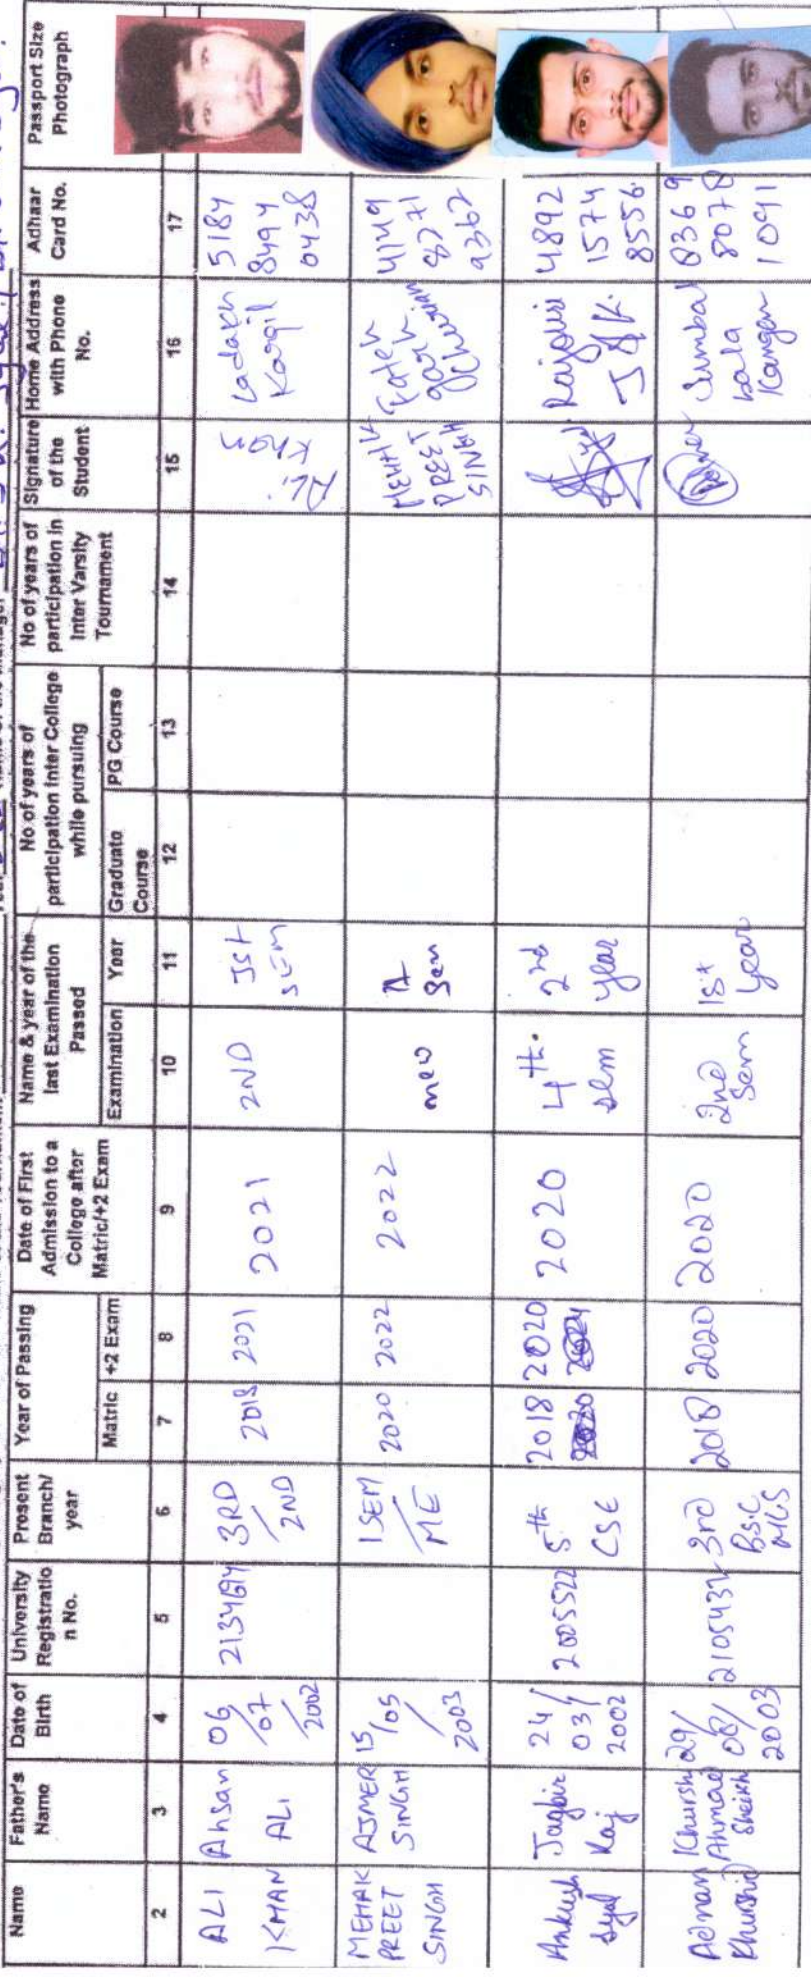 Name
Father's Name
Date of Birth
University Registratio n No.
Present Branch/ year
Year of Passing
Matric
+2 Exam
Date of First Admission to a College after Matric/+2 Exam
Name & year of the last Examination Passed
Examination
Year
No of years of participation Inter College while pursuing
Graduate Course
PG Course
No of years of participation in Inter Varsity Tournament
Signature of the Student
Home Address with Phone No.
Adhaar Card No.
Passport Size Photograph
2 3 4 5 6 7 8 9 10 11 12 13 14 15 16 17
ALI KHAN
Ahsan ALI
06/07/2002
3RD/2ND
2018
2021
2021
2ND
Ist SEM
Ladakh Kargil
5184 8494 0438
MEHAK PREET SINGH
AJMER SINGH
15/05/2003
1SEM/ME
2020
2022
2022
new
MEHAK PREET SINGH
4149 8271 9362
Ankush Syal
Jagbir Raj
24/03/2002
2005522
5th CSE
2018
2020
2020
4th. sem
2nd year
Rajouri J&K.
4892 1574 8556
Adnan Khurshid
Khurshid Ahmad Sheikh
29/08/2003
3rd B.s.C
2018
2020
2020
2nd Sem
1st year
Sumbal bala Kangan
8369 8078 1091